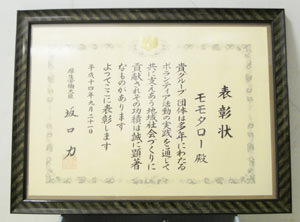 表彰状
モモタロー殿
貴グループ団体は多年にわたる
ボランティア活動の実践を通して
共に支えあう地域社会づくりに
貢献されその功績は誠に顕著
なものがあります
よってここに表彰します
平成十四年九月二十一日
厚生労働大臣 坂口力